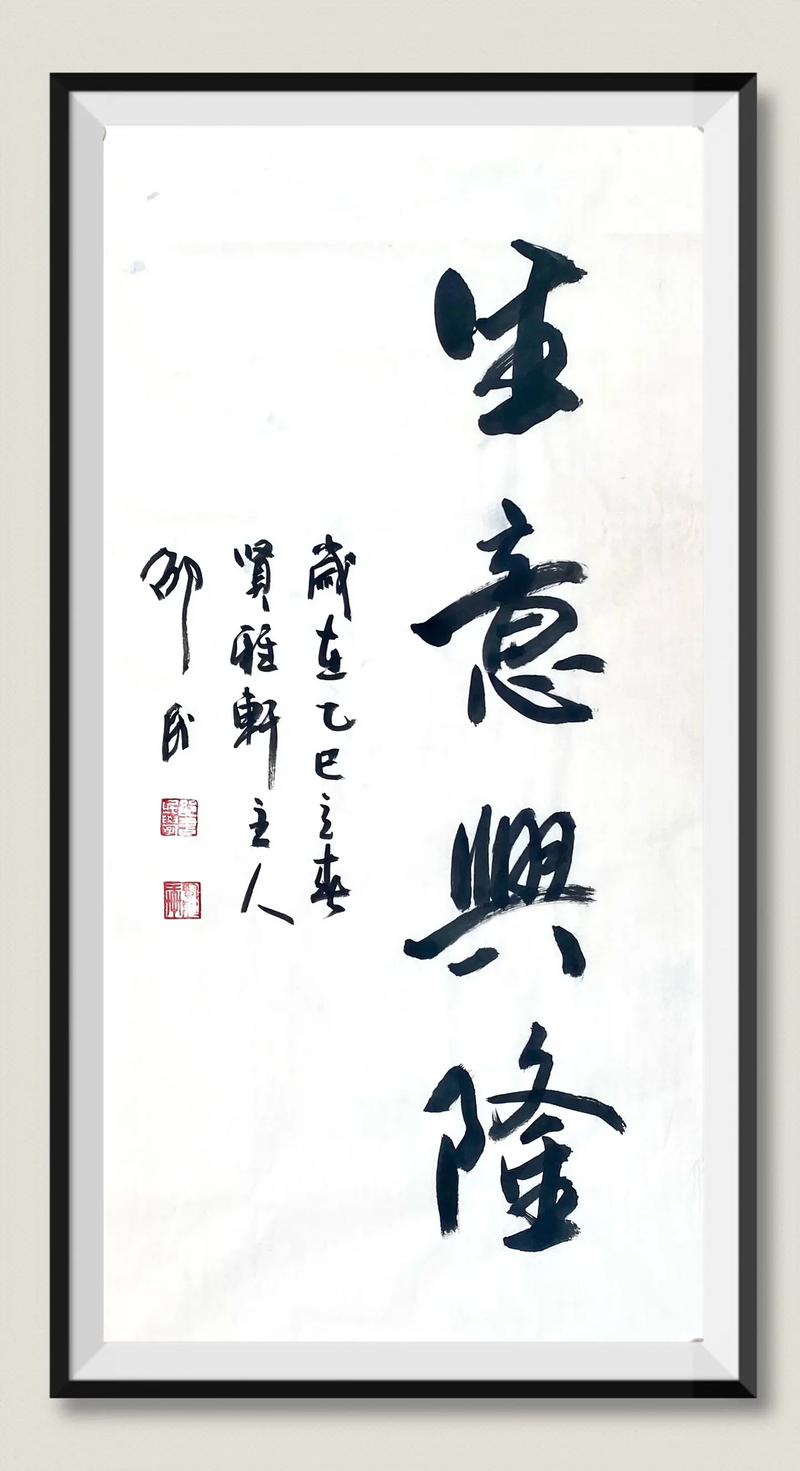 生意興隆
歲在乙巳立春
賢雅軒主人
邵民